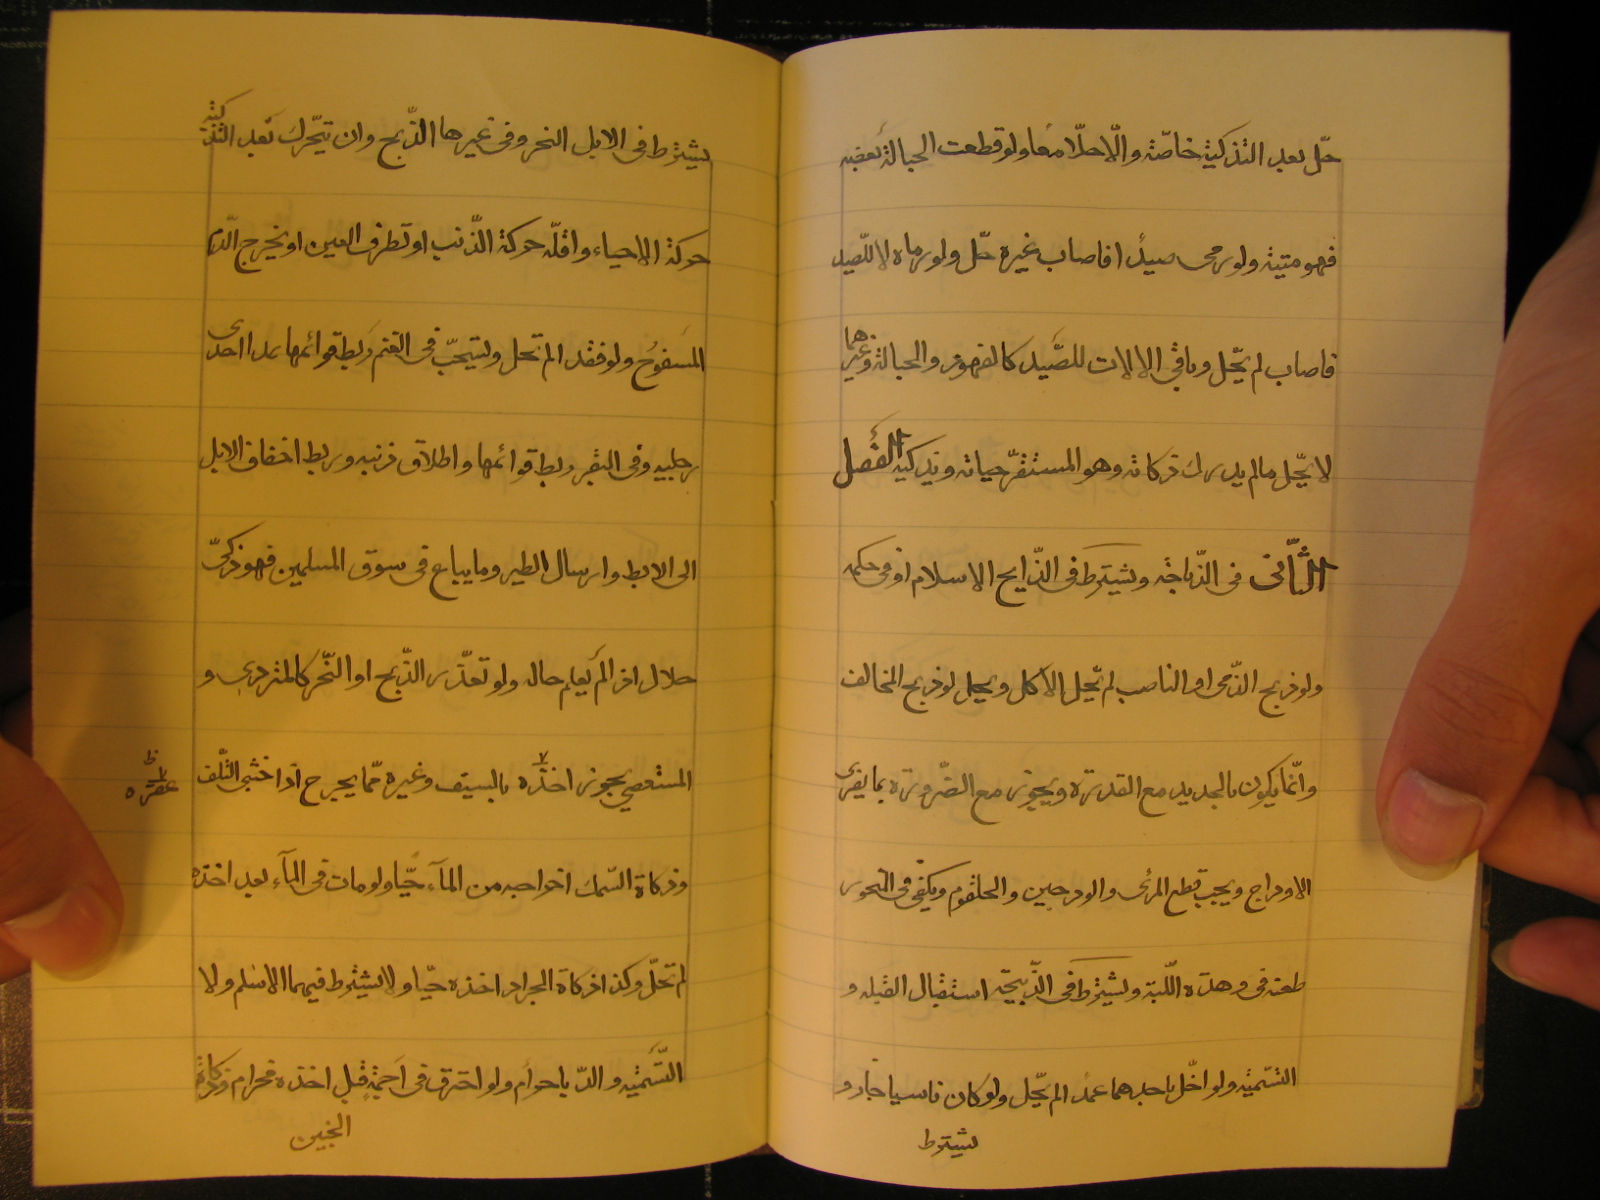 حلّ بعد التذكية خاصّة والّا حلّا معا ولو قطعت الحبالة بعضه
فهو ميتة ولو رمى صيدا فاصاب غيره حلّ ولو رماه لا للصّيد
فاصاب لم يحلّ وباقى الالات للصّيد كالفهود والحبالة وغيرهما
لا يحلّ ما لم يدرك ذكاته وهو المستقرّ حياته ويذكيه الفصل
الثّانى فى الذّباحة ويشترط فى الذّابح الاسلام او فى حكمه
ولو ذبح الذّمى او الناصب لم تحل الاكل ويحل لو ذبح المخالف
وانّما يكون بالحديد مع القدرة ويجوز مع الضّرورة بما يفرى
الاوداج ويجب قطع المرئى والودجين والحلقوم ويكفى فى النحور
طعنه فى وهدة اللّبة ويشترط فى الذّبيحة استقبال القبله و
التسمية ولو اخلّ باحدهما عمدا لم يحلّ ولو كان ناسيا جاز و
يشترط
يشترط فى الابل النحر وفى غيرها الذّبح وان يتحّرك بعد التذكية
حركة الاحياء واقلّه حركة الذّنب او تطرف العين او يخرج الدّم
المسفوح ولو فقد الم تحل ويستحبّ فى الغنم ربط قوائمها عدا احدى
رجليه وفى البقر ربط قوائمها واطلاق ذنبه وربط اخفاف الابل
الى الابط وارسال الطير وما يباع فى سوق المسلمين فهو ذكىّ
حلال اذا لم يعلم حاله ولو تعذّر الذّبح او النّحر كالمتردى و
المستعصى يجوز اخذه بالسيف وغيره ممّا يجرح اذا خشى التّلف
عقره
وذكاة السّمك اخراجه من المآء حيّا ولو مات فى المآء بعد اخذه
لم تحلّ وكذا ذكاة الجراد اخذه حيّا ولا يشترط فيهما الاسلم ولا
التّسمية والدّبا حرام ولو احترق فى اجمة قبل اخذه فحرام وذكاة
الجنين